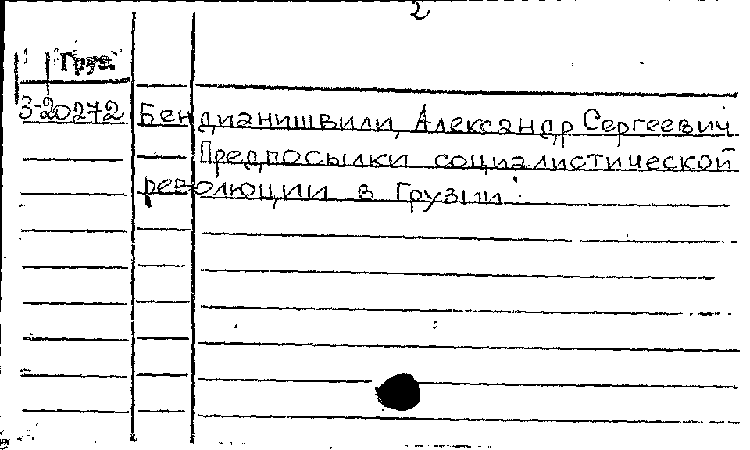 2
"Груз"
3-20272 Бендианишвили, Александр Сергеевич
Предпосылки социалистической
революции в Грузии.